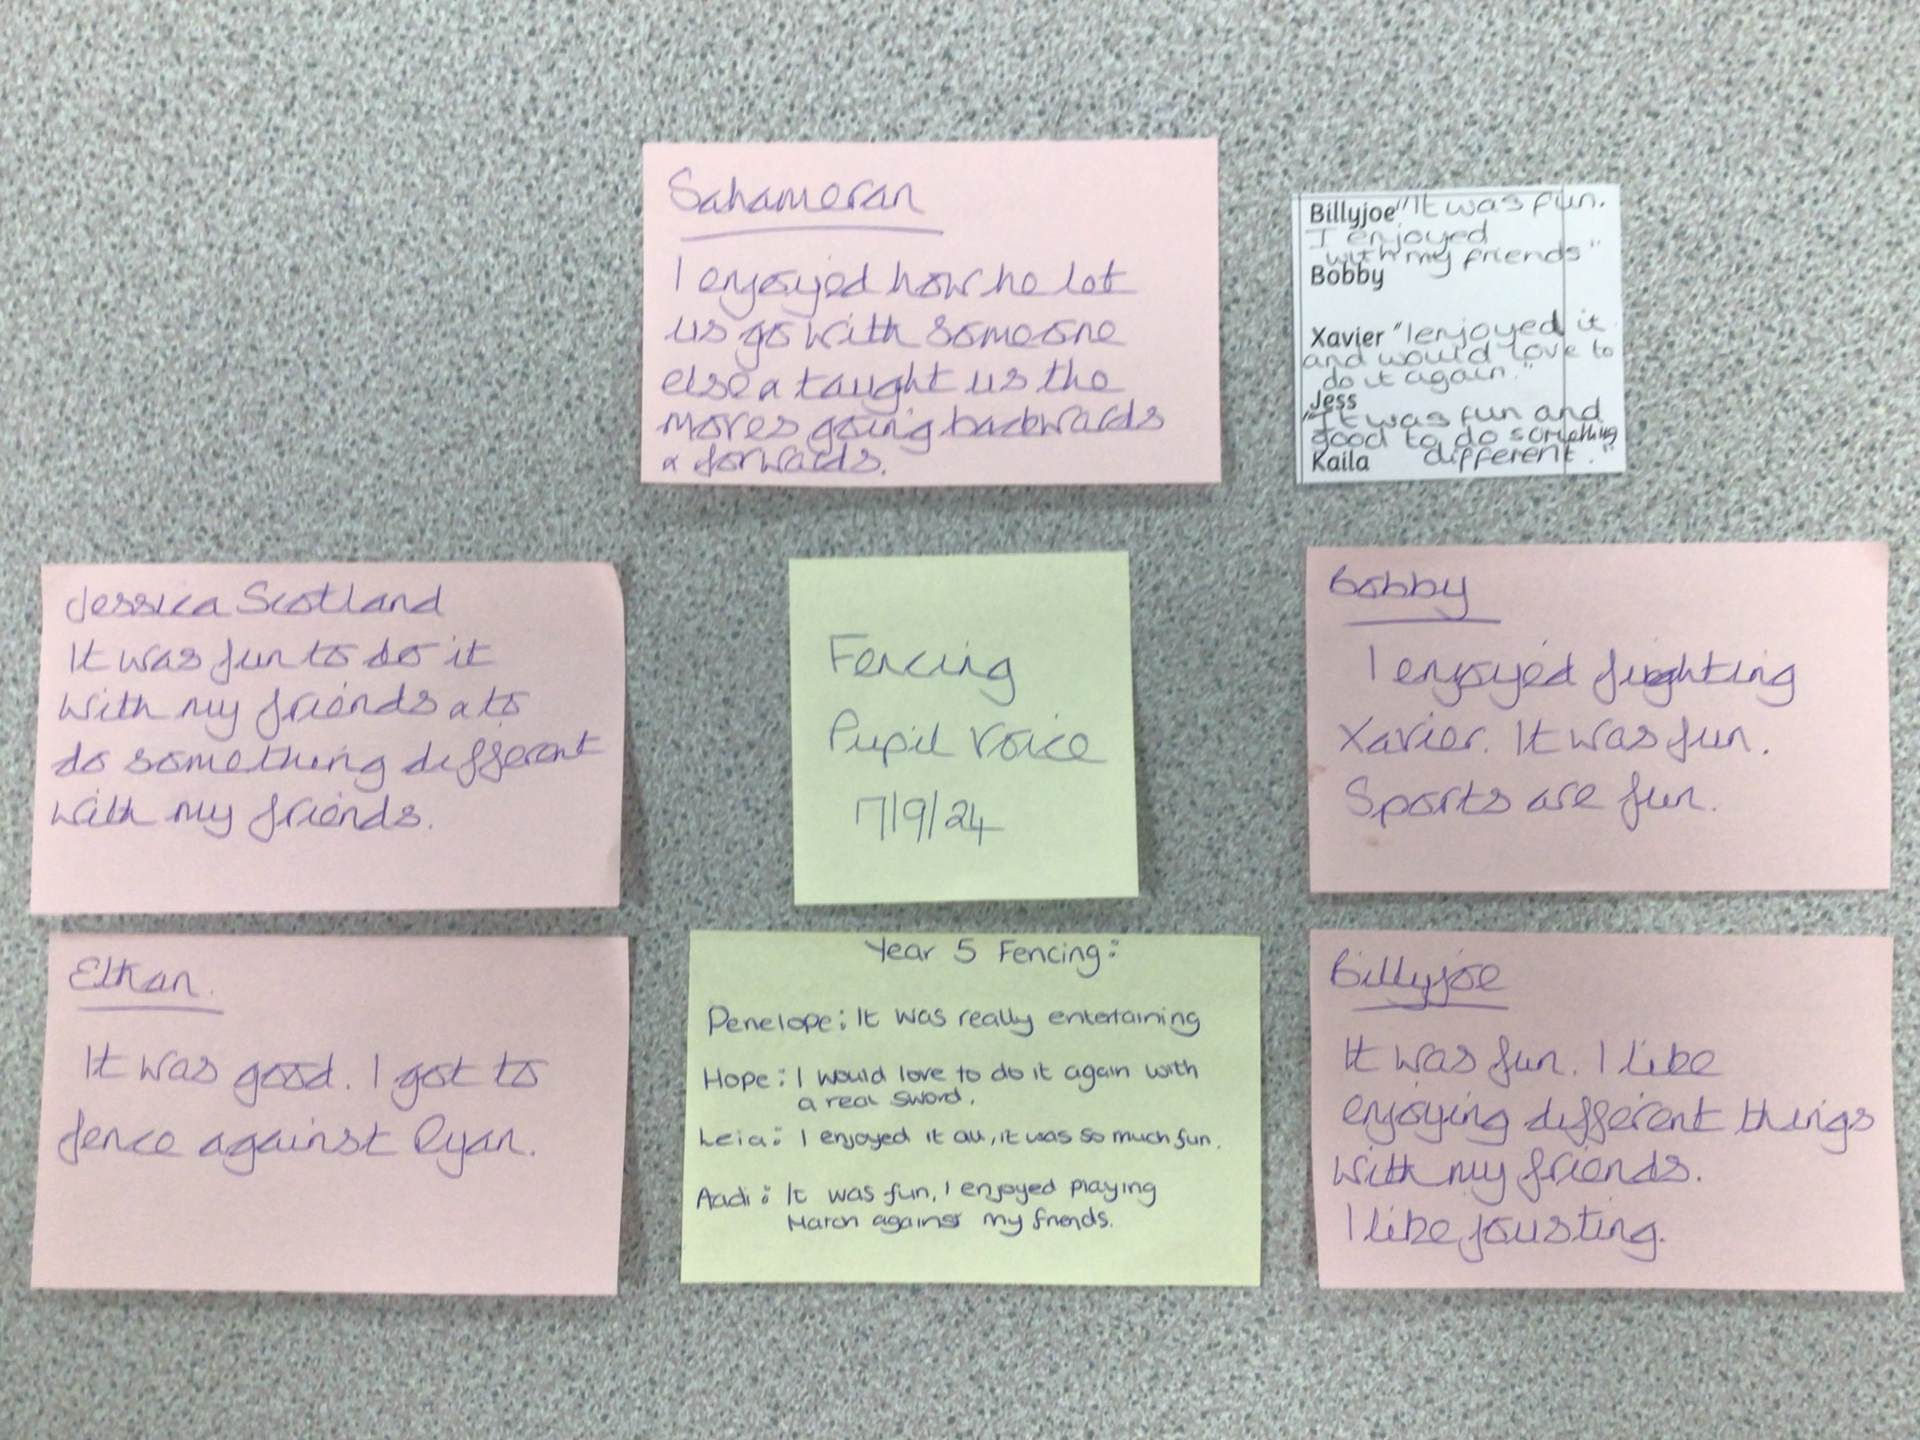 Sahameran
I enjoyed how he let
us go with someone
else & taught us the
moves going backwards
& forwards.
Billyjoe "It was fun.
I enjoyed
with my friends"
Bobby
Xavier "I enjoyed it
and would love to
do it again."
Jess
"It was fun and
good to do something
Kaila different."
Jessica Scotland
It was fun to do it
with my friends & to
do something different
with my friends.
Fencing
Pupil Voice
17/9/24
Bobby
I enjoyed fighting
Xavier. It was fun.
Sports are fun.
Elkan.
It was good. I got to
fence against Ryan.
Year 5 Fencing:
Penelope: It was really entertaining
Hope: I would love to do it again with
a real sword.
Leia: I enjoyed it all, it was so much fun.
Aadi: It was fun, I enjoyed playing
March against my friends.
Billyjoe
It was fun. I like
enjoying different things
with my friends.
I like jousting.